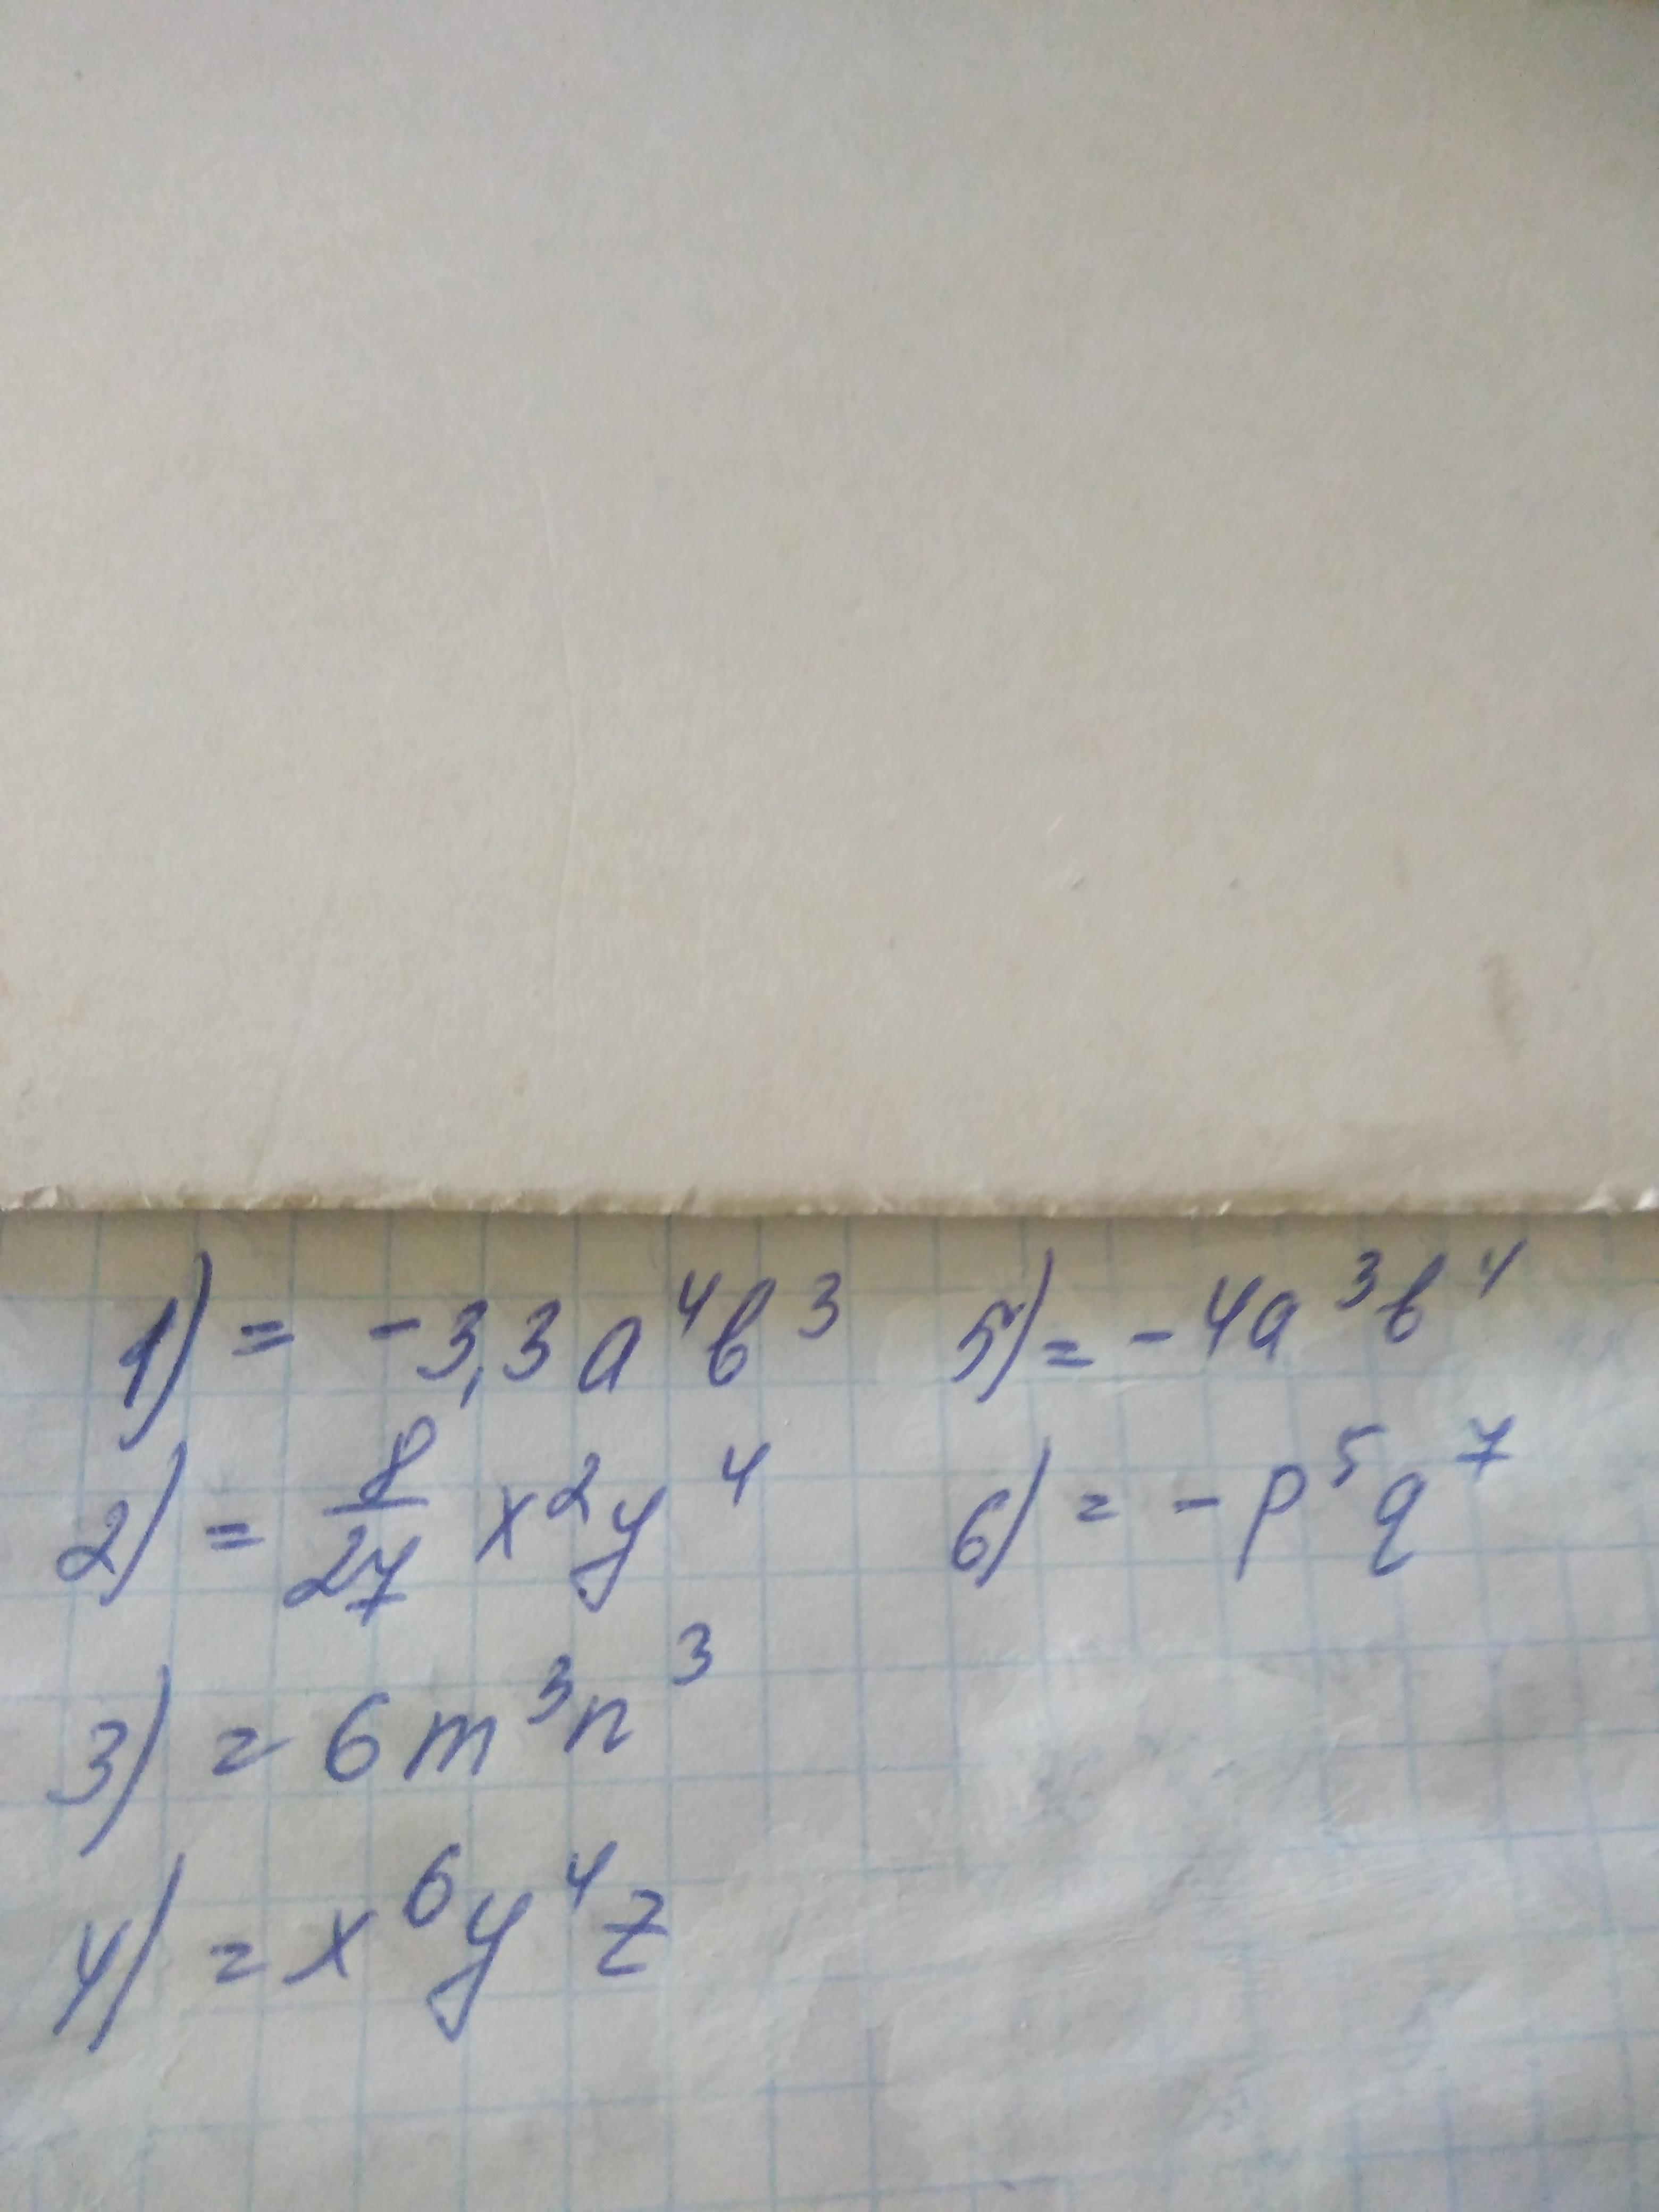 1) = -3,3a⁴b³
2) = 8/27 x²y⁴
3) = 6m³n³
4) = x⁶y⁴z
5) = -4a³b⁴
6) = -p⁵q⁷